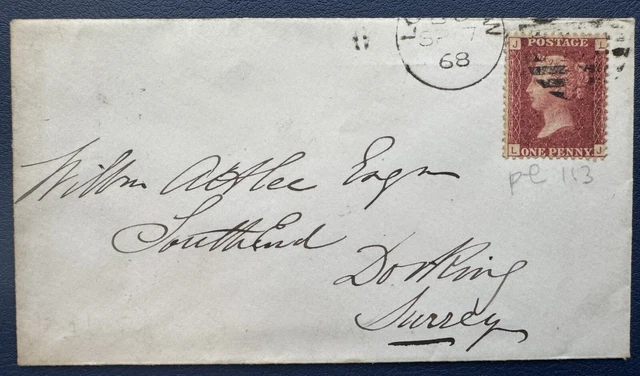 LONDON
68
J POSTAGE L
L ONE PENNY J
pl 113
Attlee Esqr
SouthEnd
Dorking
Surrey